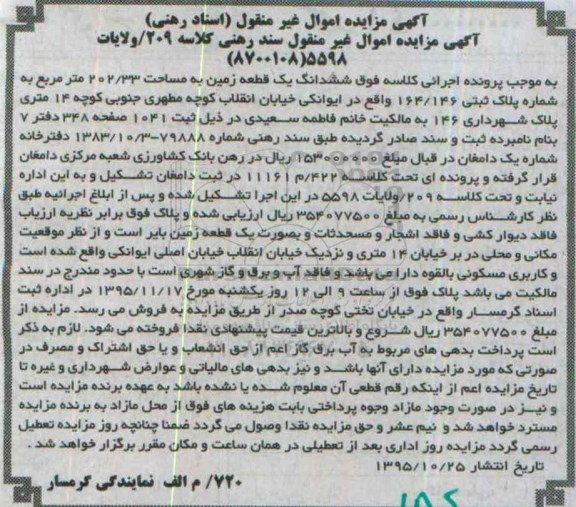 آگهی مزایده اموال غیر منقول (اسناد رهنی)
آگهی مزایده اموال غیر منقول سند رهنی کلاسه ۲۰۹/ولایات
۵۵۹۸(۸۷۰۰۱۰۸)
به موجب پرونده اجرائی کلاسه فوق ششدانگ یک قطعه زمین به مساحت ۲۰۲/۳۳ متر مربع به
شماره پلاک ثبتی ۱۶۴/۱۴۶ واقع در ایوانکی خیابان انقلاب کوچه مطهری جنوبی کوچه ۱۴ متری
پلاک شهرداری ۱۴۶ به مالکیت خانم فاطمه سعیدی در ذیل ثبت ۱۰۴۱ صفحه ۳۴۸ دفتر ۷
بنام نامبرده ثبت و سند صادر گردیده طبق سند رهنی شماره ۷۹۸۸۸-۱۳۸۳/۱۰/۳ دفترخانه
شماره یک دامغان در قبال مبلغ ۱۵۳۰۰۰۰۰۰ ریال در رهن بانک کشاورزی شعبه مرکزی دامغان
قرار گرفته و پرونده ای تحت کلاسه ۴۲۲/م ۱۱۱۶۱ در ثبت دامغان تشکیل و به این اداره
نیابت و تحت کلاسه ۲۰۹/ولایات ۵۵۹۸ در این اجرا تشکیل شده و پس از ابلاغ اجرائیه طبق
نظر کارشناس رسمی به مبلغ ۳۵۴۰۷۷۵۰۰ ریال ارزیابی شده و پلاک فوق برابر نظریه ارزیاب
فاقد دیوار کشی و فاقد اشجار و مسحدثات و بصورت یک قطعه زمین بایر است و از نظر موقعیت
مکانی و محلی در بر خیابان ۱۴ متری و نزدیک خیابان انقلاب خیابان اصلی ایوانکی واقع شده است
و کاربری مسکونی بالقوه دارا می باشد و فاقد آب و برق و گاز شهری است با حدود مندرج در سند
مالکیت می باشد پلاک فوق از ساعت ۹ الی ۱۲ روز یکشنبه مورخ ۱۳۹۵/۱۱/۱۷ در اداره ثبت
اسناد گرمسار واقع در خیابان تختی کوچه صدر از طریق مزایده به فروش می رسد. مزایده از
مبلغ ۳۵۴۰۷۷۵۰۰ ریال شروع و بالاترین قیمت پیشنهادی نقدا فروخته می شود. لازم به ذکر
است پرداخت بدهی های مربوط به آب برق گاز اعم از حق انشعاب و یا حق اشتراک و مصرف در
صورتی که مورد مزایده دارای آنها باشد و نیز بدهی های مالیاتی و عوارض شهرداری و غیره تا
تاریخ مزایده اعم از اینکه رقم قطعی آن معلوم شده یا نشده باشد به عهده برنده مزایده است
و نیز در صورت وجود مازاد وجوه پرداختی بابت هزینه های فوق از محل مازاد به برنده مزایده
مسترد خواهد شد و نیم عشر و حق مزایده نقدا وصول می گردد ضمنا چنانچه روز مزایده تعطیل
رسمی گردد مزایده روز اداری بعد از تعطیلی در همان ساعت و مکان مقرر برگزار خواهد شد .
تاریخ انتشار ۱۳۹۵/۱۰/۲۵
۷۲۰/ م الف نمایندگی گرمسار